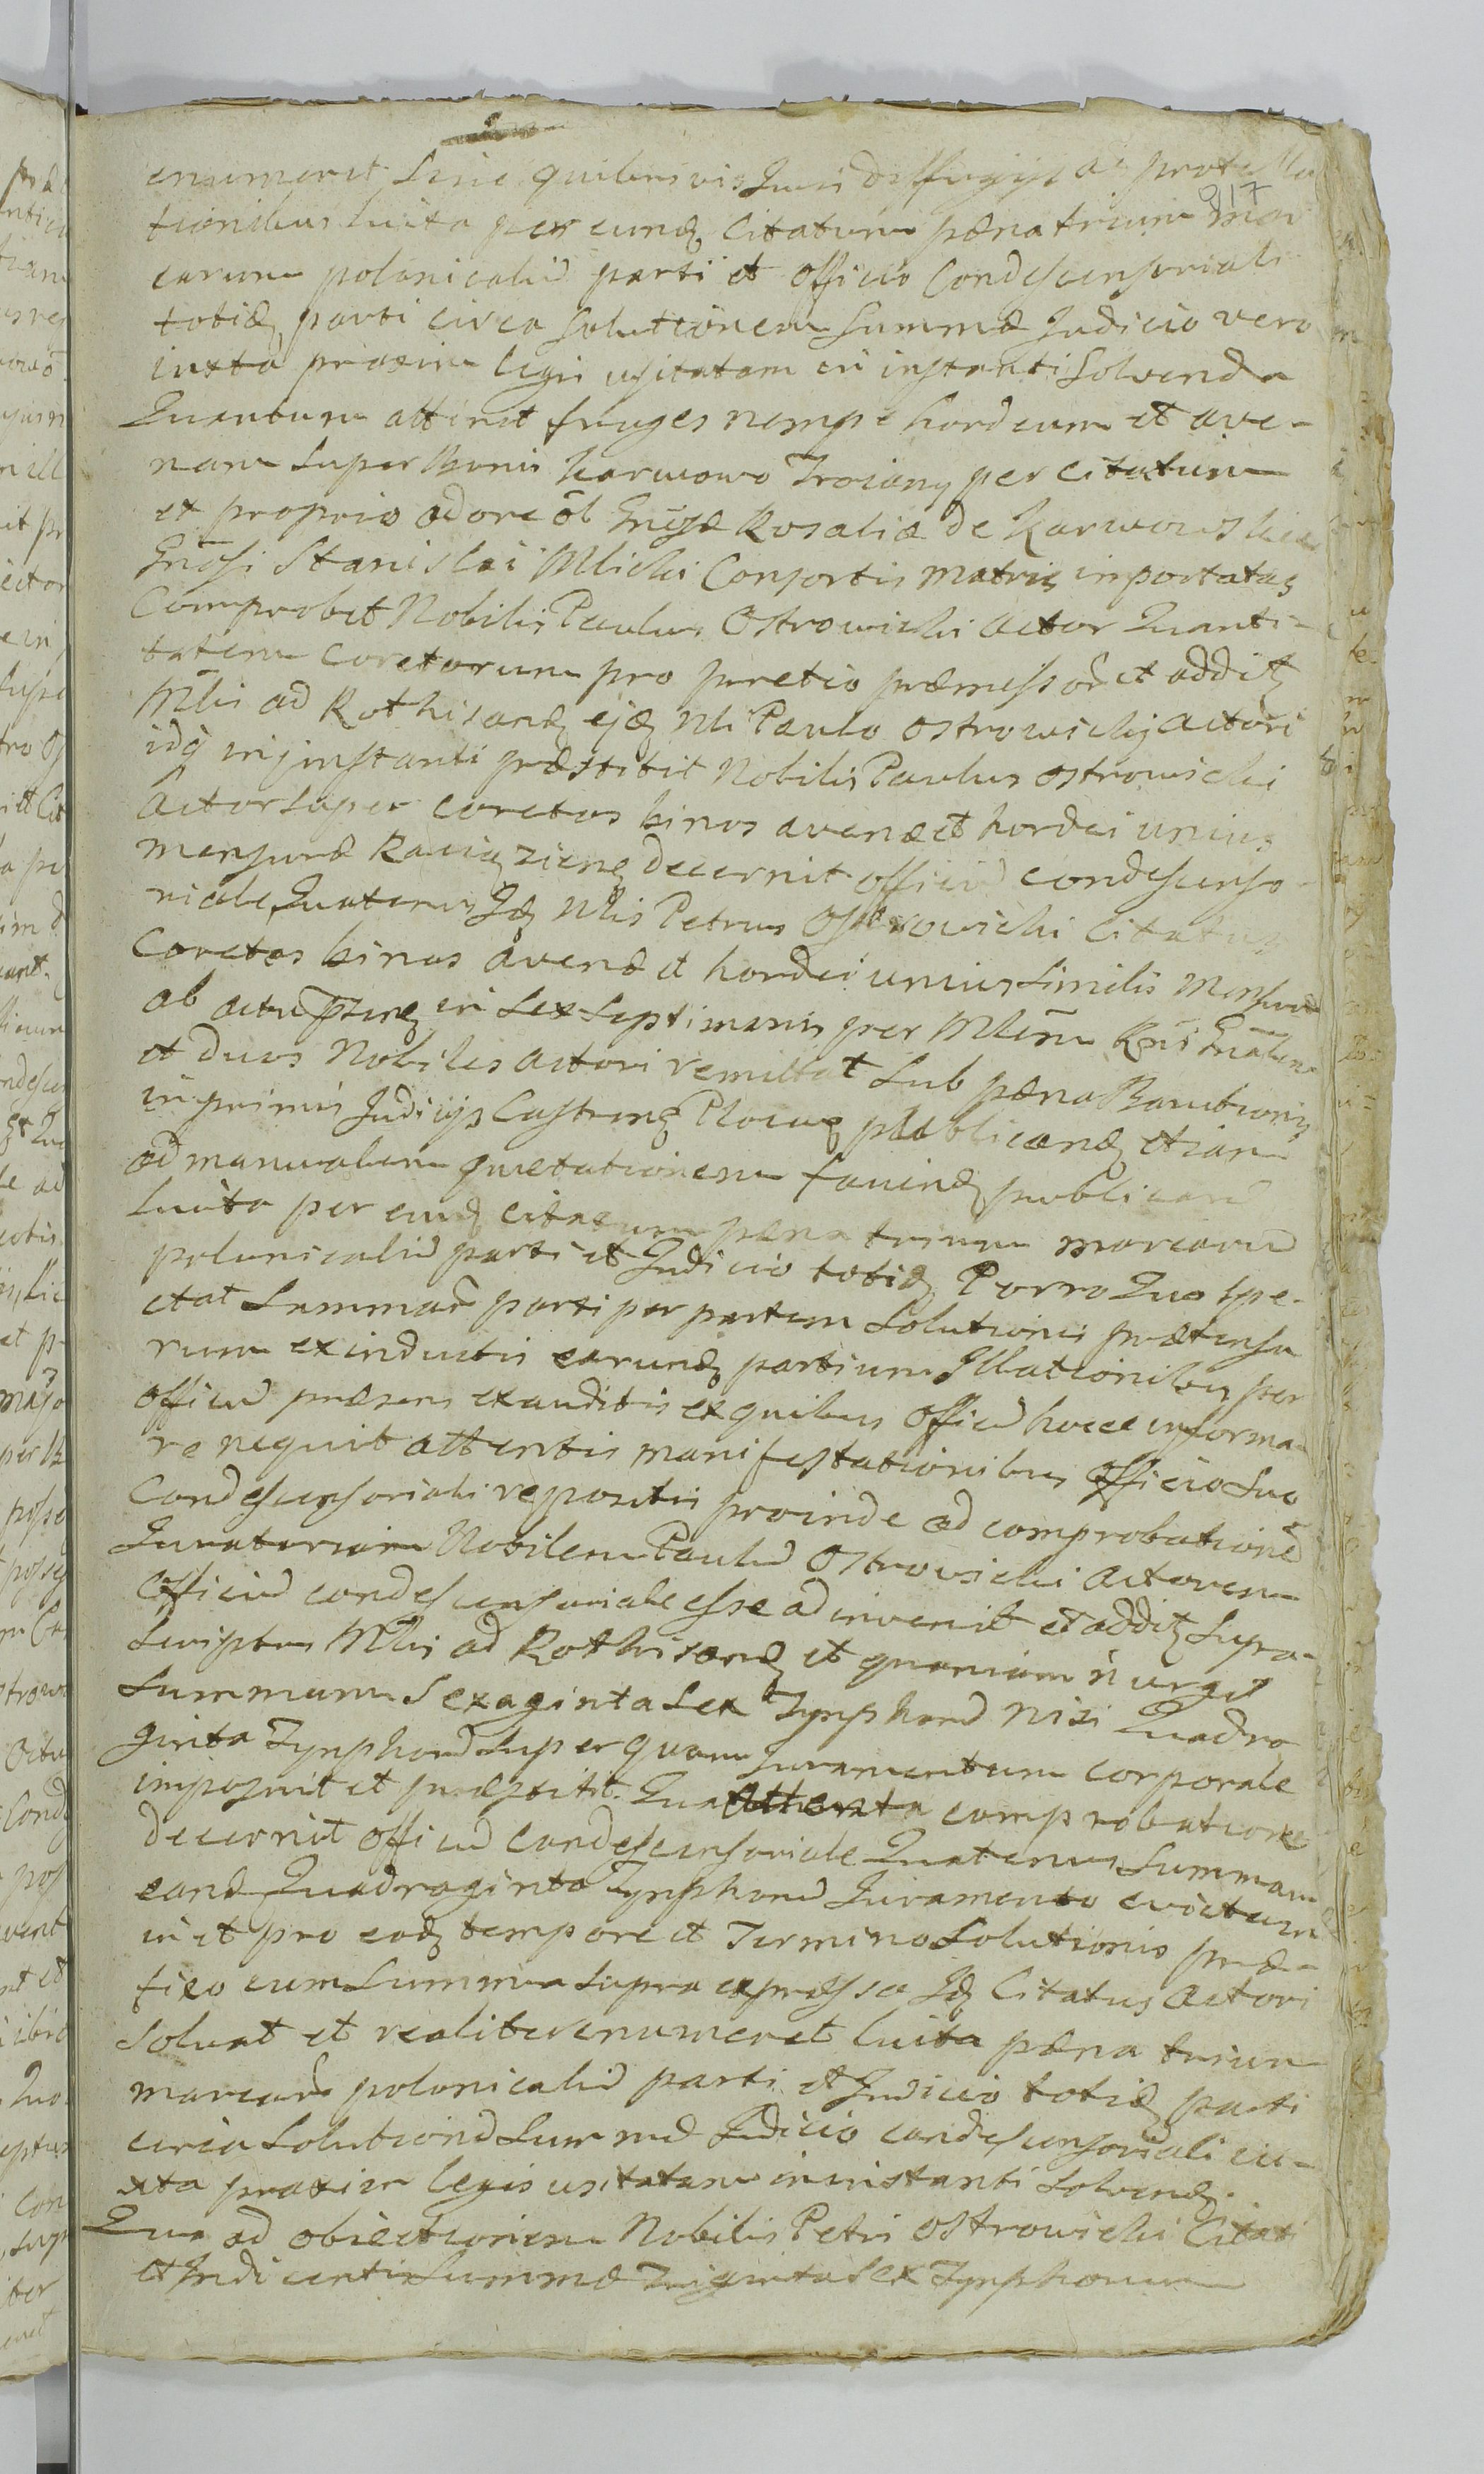 enumeret sine quibusvis Juris diffugijs ac protesta
917
tionibus luita per eund citatum pæna trium mar
carum polonicaliu parti et officio Condescensoriali
totid parti circa solutionem summæ Judicio vero
iuxta praxim legis usitatam in instanti solvenda
Quantum attinet fruges nempe hordeum et ave-
nam super Bonis Karwowo Troiany per citatum
et proprio ad ore Gnsæ Rosaliæ de Karwowskie
Gnosi Stanislai Mlicki Consortis matris importatas
Comprobet Nobilis Paulus Ostrowicki actor Quanti-
tatem coretorum pro pretio præmissor et addit
Mlis ad Rothisand ejd Nli Paulo Ostrowicki actori
idq in instanti præstitit Nobilis Paulus Ostrowicki
Actor super coretos binos avenæ et hordei unius
mensuræ Raciązien decernit officiu condescenso-
riale Quatenus Id Nlis Petrus Ostrowicki Citatus
Coretos binos avenæ et hordei unius similis mensuræ
ab actu in sex septimanis per Mlem
et duos Nobiles actori remittat sub pæna Bannitionis
in primis Judicijs Castren Plocen publicand etiam
ad manualem quietationem publicar
luita per eund citatum pæna trium marcaru
polonicaliu parti et Judicio totid Porro Quo spe-
ctat summar parti per partem solutionis prætensa
rum ex inductis earund partium Illationibus per
officiu præsens exauditis ex quibus officiu hocce informa-
re nequit attentis manifestationibus officio suo
Condescensoriali repositis proinde ad comprobatione
Juratoriam Nobilem Paulu Ostrowicki actorem
officiu condescensoriale esse ad invenit et addit supra-
scriptus Mlis ad Rothisand et quoniam n urget
summam sexaginta sex Tynphoru nisi Quadra
ginta Tynphoru super quam Juramentum corporale
imposuit et præstitit. Qua attenta comprobatione
decernit officiu condescensoriale Quatenus summam
eand Quadraginta Tynphoru Juramento evictam
in et pro eod tempore et Termino solutionis præ-
fixo cum summa supra expressa Id Citatus actori
solvat et realiter enumeret luita pæna trium
marcar polonicaliu parti et Judicio totid parti
circa solutione summæ Judicio condescensoriali iu-
xta praxim legis usitatam in instanti solvend.
Quo ad obiectionem Nobilis Petri Ostrowicki Citati
et Indicentis summæ Triginta sex Tynphorum